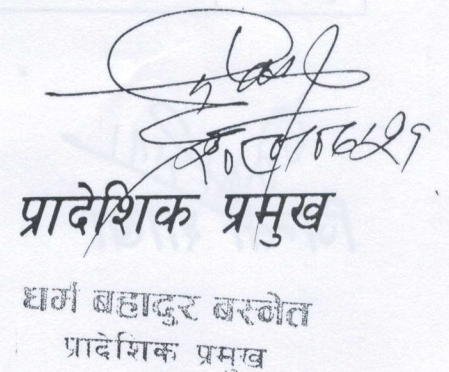 प्रादेशिक प्रमुख
धर्म बहादुर बस्नेत
प्रादेशिक प्रमुख